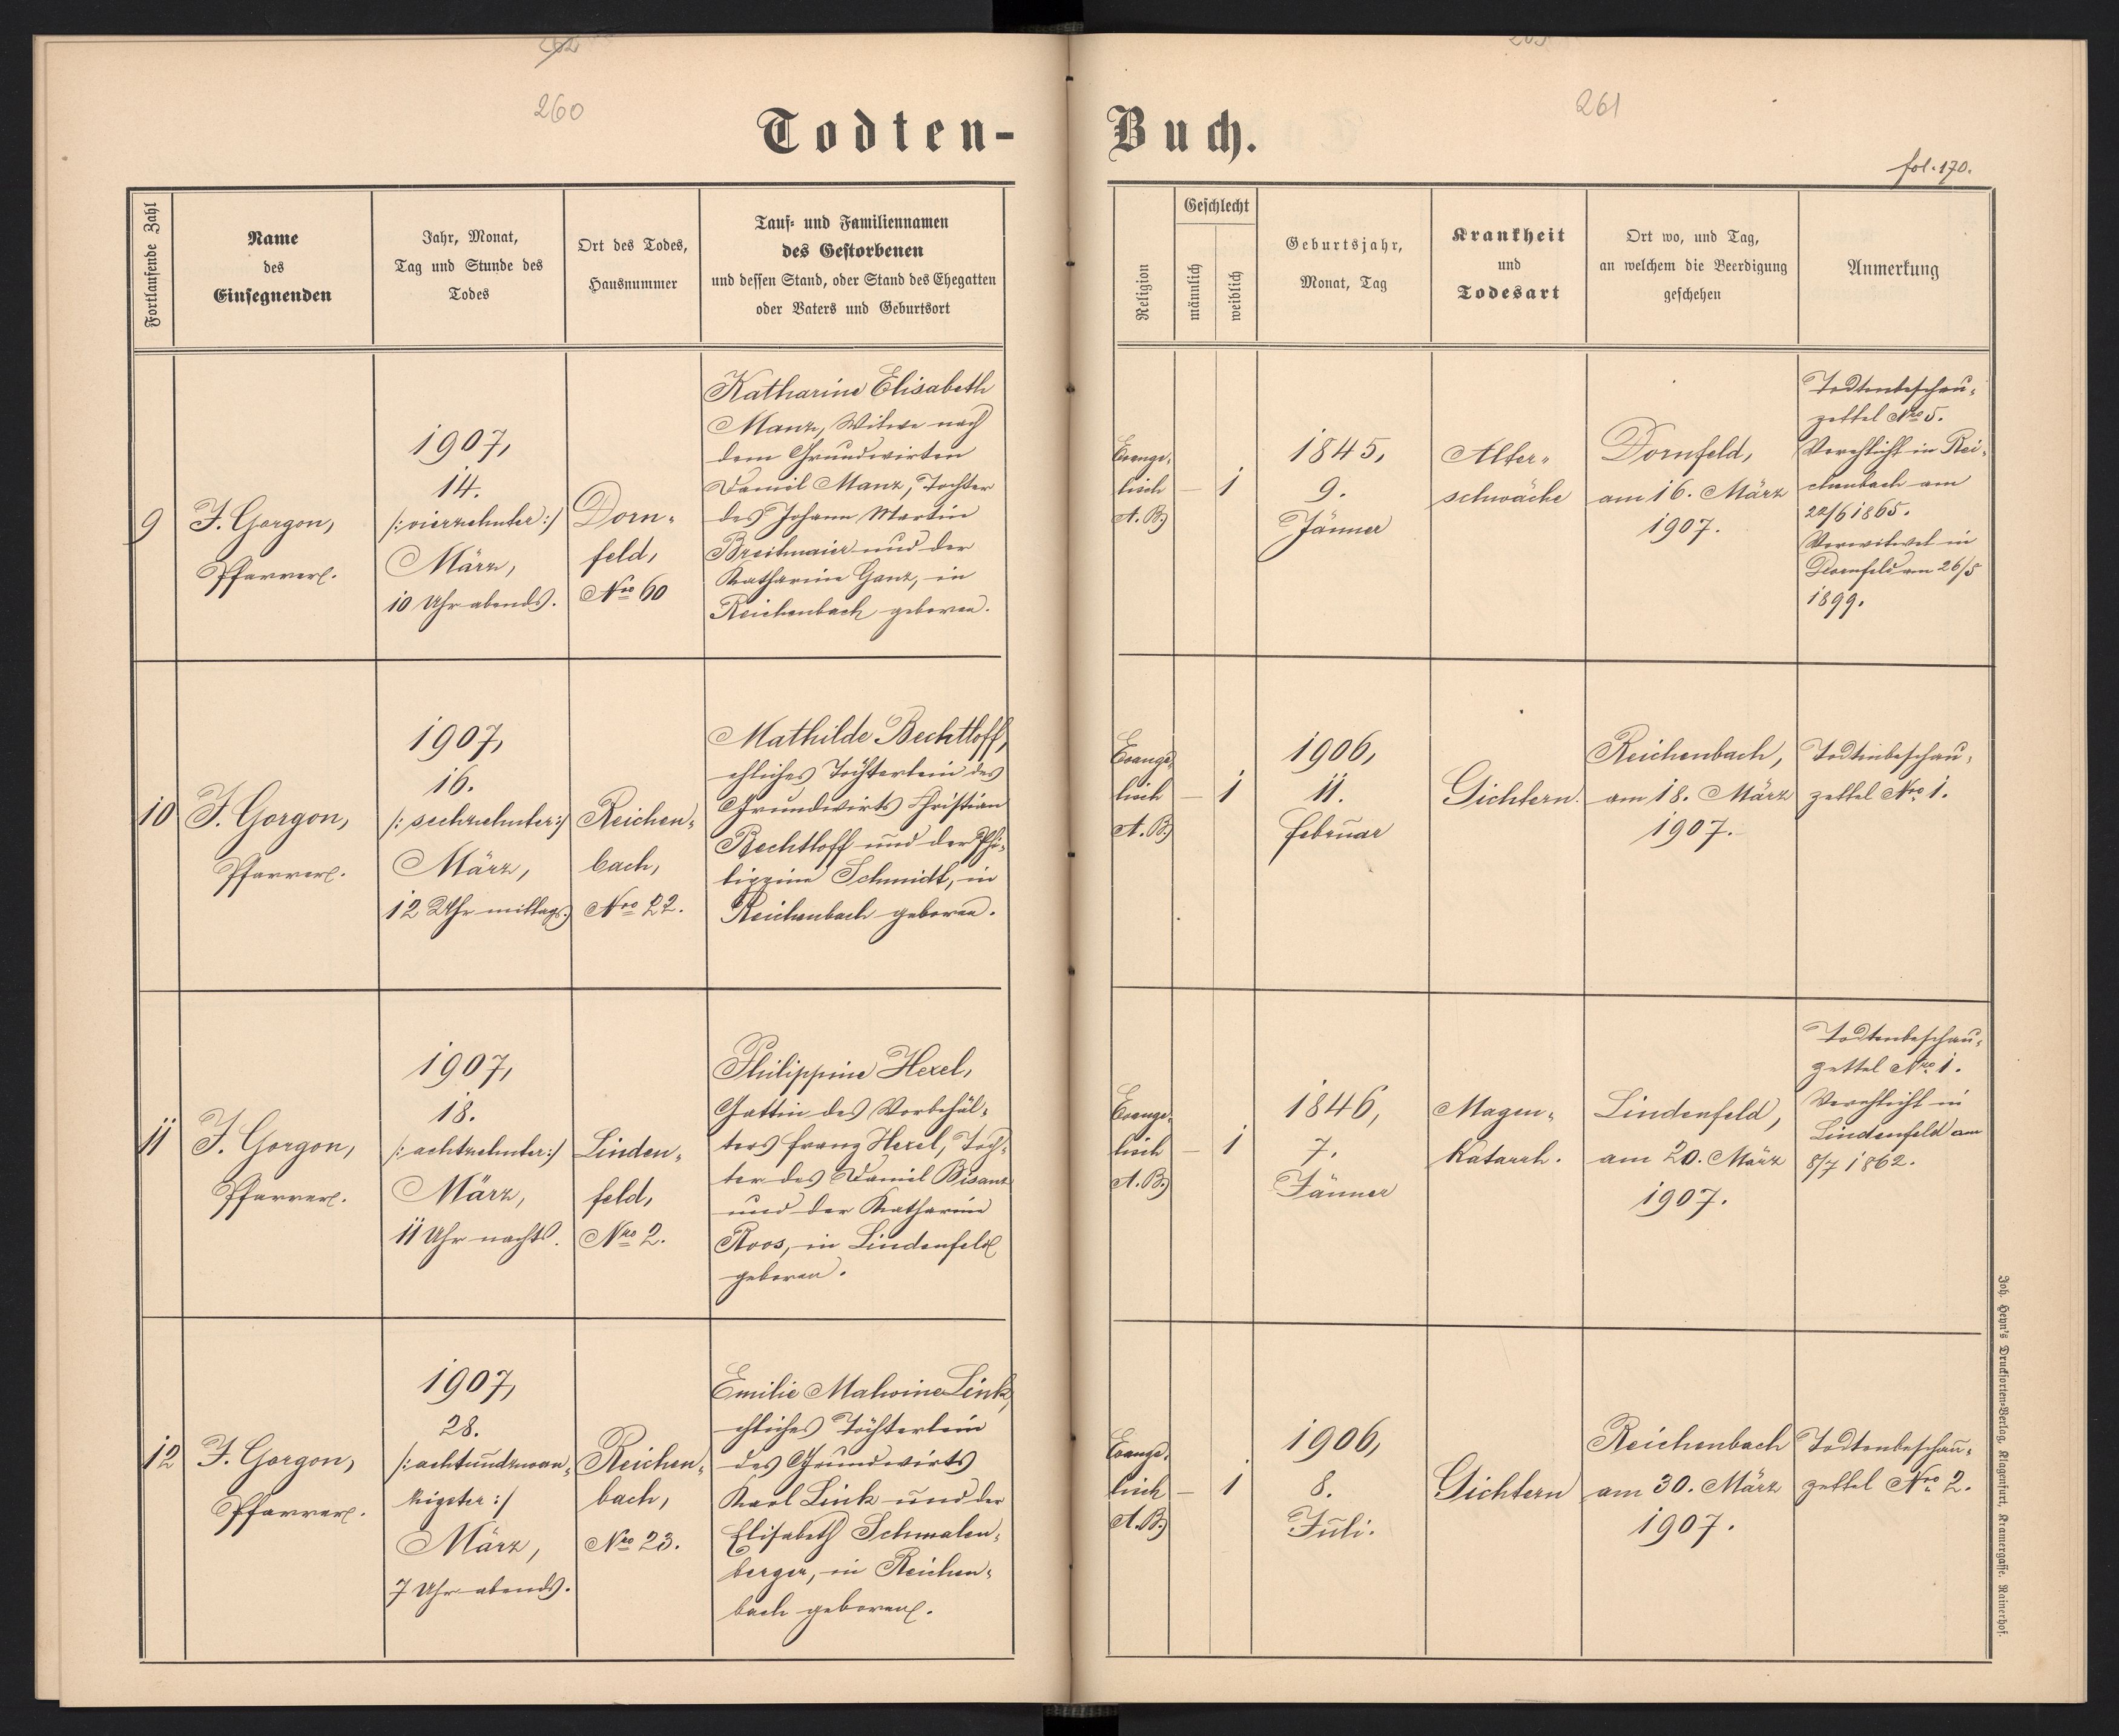 260
261
Todten-
Buch.
fol. 170.
Fortlaufende Zahl
Name
des
Einsegnenden
Jahr, Monat,
Tag und Stunde des
Todes
Ort des Todes,
Hausnummer
Tauf- und Familiennamen
des Gestorbenen
und dessen Stand, oder Stand des Ehegatten
oder Vaters und Geburtsort
Religion
Geschlecht
männlich
weiblich
Geburtsjahr,
Monat, Tag
Krankheit
und
Todesart
Ort wo, und Tag,
an welchem die Beerdigung
geschehen
Anmerkung
9
F. Gorgon,
Pfarrer.
1907,
14.
/:vierzehnter:/
März,
10 Uhr abends.
Dorn-
feld,
Nro 60
Katharine Elisabeth
Manz, Witwe nach
dem Grundwirten
Daniel Manz, Tochter
des Johann Martin
Breitmaier und der
Katharine Ganz, in
Reichenbach geboren.
Evange-
lisch
A. B.
—
1
1845,
9.
Jänner
Alters-
schwäche
Dornfeld,
am 16. März
1907.
Todtenbeschau-
zettel Nro 5.
Verehlicht in Rei-
chenbach am
22/6 1865.
Verwitwet in
Dornfeld am 26/5
1899.
10
F. Gorgon,
Pfarrer.
1907,
16.
/:sechzehnter:/
März,
12 Uhr mittags.
Reichen-
bach,
Nro 22.
Mathilde Bechtloff,
ehliches Töchterlein des
Grundwirts Christian
Bechtloff und der Phi-
lippine Schmidt, in
Reichenbach geboren.
Evange-
lisch
A. B.
—
1
1906,
11.
Februar
Gichtern.
Reichenbach,
am 18. März
1907.
Todtenbeschau-
zettel Nro 1.
11
F. Gorgon,
Pfarrer.
1907,
18.
/:achtzehnter:/
März,
11 Uhr nachts.
Linden-
feld,
Nro 2.
Philippine Hexel,
Gattin des Vorbehäl-
ters Franz Hexel, Toch-
ter des Daniel Bisanz
und der Katharine
Roos, in Lindenfeld
geboren.
Evange-
lisch
A. B.
—
1
1846,
7.
Jänner
Magen-
Katarrh.
Lindenfeld,
am 20. März
1907.
Todtenbeschau-
zettel Nro 1.
Verehlicht in
Lindenfeld am
8/7 1862.
12
F. Gorgon,
Pfarrer.
1907,
28.
/:achtundzwan-
zigster:/
März,
7 Uhr abends.
Reichen-
bach,
Nro 23.
Emilie Malwine Link,
ehliches Töchterlein
des Grundwirts
Karl Link und der
Elisabeth Schmalen-
berger, in Reichen-
bach geboren.
Evange-
lisch
A. B.
—
1
1906,
8.
Juli.
Gichtern
Reichenbach
am 30. März
1907.
Todtenbeschau-
zettel Nro 2.
Joh. Heyn's Drucksorten-Verlag, Klagenfurt, Kramergasse. Rainerhof.